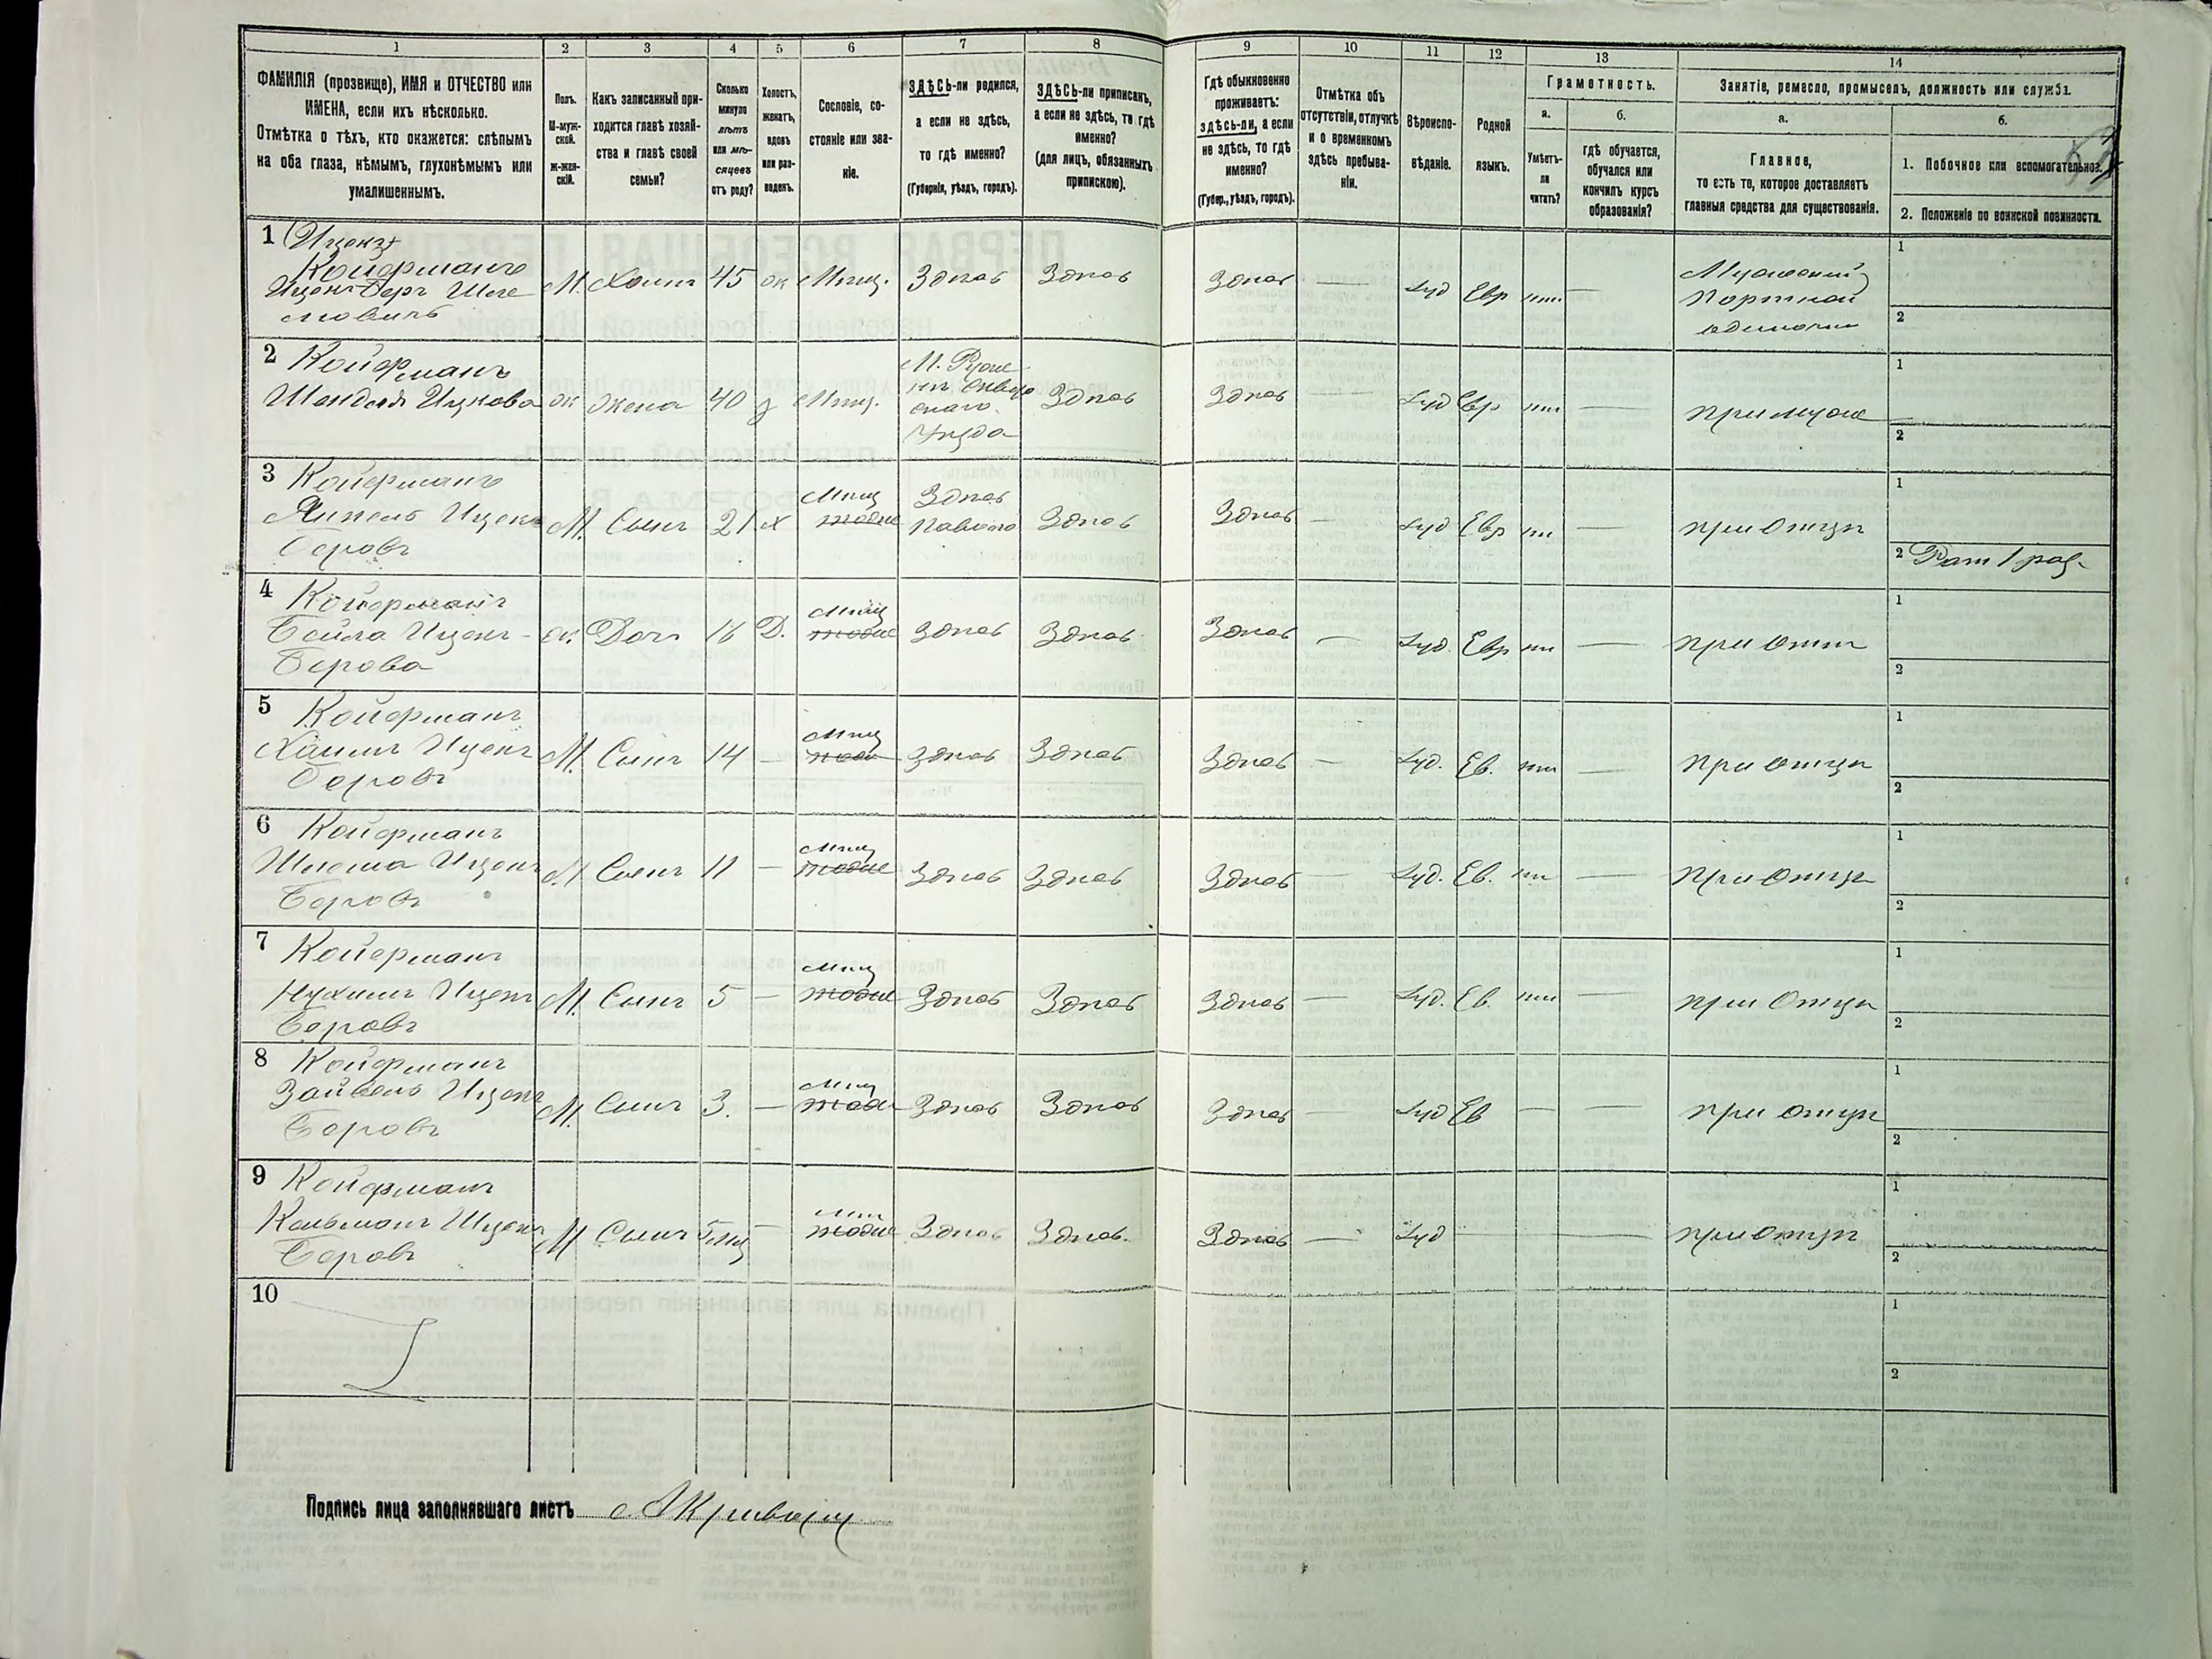 1 2 3 4 5 6 7 8 9 10 11 12 13 14
ФАМИЛІЯ (прозвище), ИМЯ и ОТЧЕСТВО или
ИМЕНА, если ихъ нѣсколько.
Отмѣтка о тѣхъ, кто окажется: слѣпымъ
на оба глаза, нѣмымъ, глухонѣмымъ или
умалишеннымъ.
Полъ.
М-муж-
ской.
Ж-жен-
скій.
Какъ записанный при-
ходится главѣ хозяй-
ства и главѣ своей
семьи?
Сколько
минуло
лѣтъ
или мѣ-
сяцевъ
отъ роду?
Холостъ,
женатъ,
вдовъ
или раз-
веденъ.
Сословіе, со-
стояніе или зва-
ніе.
ЗДѢСЬ-ли родился,
а если не здѣсь,
то гдѣ именно?
(Губернія, уѣздъ, городъ).
ЗДѢСЬ-ли приписанъ,
а если не здѣсь, то гдѣ
именно?
(для лицъ, обязанныхъ
припискою).
Гдѣ обыкновенно
проживаетъ:
здѣсь-ли, а если
не здѣсь, то гдѣ
именно?
(Губер., уѣздъ, городъ).
Отмѣтка объ
отсутствіи, отлучкѣ
и о временномъ
здѣсь пребыва-
ніи.
Вѣроиспо-
вѣданіе.
Родной
языкъ.
Грамотность.
а.
Умѣетъ-
ли
читать?
б.
гдѣ обучается,
обучался или
кончилъ курсъ
образованія?
Занятіе, ремесло, промыселъ, должность или служба.
а.
Главное,
то есть то, которое доставляетъ
главныя средства для существованія.
б.
1. Побочное или вспомогательное.
2. Положеніе по воинской повинности.
1 (Иценъ)
Койферманъ
Иценъ-Беръ
М. Хозяинъ 45 ж Мѣщ. Здѣсь Здѣсь Здѣсь — Іуд Евр нѣтъ —
Мужской
Портной
одиночка
1
2
2 Койферманъ
Шендля Ицкова ж жена 40 з Мѣщ.
Сквир
скаго
Уѣзда
Здѣсь Здѣсь — Іуд Евр нѣтъ — при мужѣ
1
2
3 Койферманъ
Янкель Иценъ
Беровъ
М. Сынъ 21 х Мѣщ Здѣсь Здѣсь Здѣсь — Іуд Евр нѣтъ — при Отцѣ
1
2 Рат 1 раз.
4 Койферманъ
Бейла Иценъ-
Берова
ж. Дочь 16 Д. Мѣщ Здѣсь Здѣсь Здѣсь — Іуд. Евр нѣтъ — при Отцѣ
1
2
5 Койферманъ
Хаимъ Иценъ
Беровъ
М. Сынъ 14 — Мѣщ Здѣсь Здѣсь Здѣсь — Іуд. Ев. нѣтъ — при Отцѣ
1
2
6 Койферманъ
Шлема Иценъ
Беровъ
М Сынъ 11 — Мѣщ Здѣсь Здѣсь Здѣсь — Іуд. Ев. нѣтъ — при Отцѣ
1
2
7 Койферманъ
Нухимъ Иценъ
Беровъ
М. Сынъ 5 — Мѣщ Здѣсь Здѣсь Здѣсь — Іуд. Ев. нѣтъ — при Отцѣ
1
2
8 Койферманъ
Зайвель Иценъ
Беровъ
М. Сынъ 3. — Мѣщ Здѣсь Здѣсь Здѣсь — Іуд Ев — — при Отцѣ
1
2
9 Койферманъ
Кальманъ Иценъ
Беровъ
М Сынъ 5 мѣс — Мѣщ Здѣсь Здѣсь. Здѣсь — Іуд — — при Отцѣ
1
2
10
1
2
Подпись лица заполнявшаго листъ